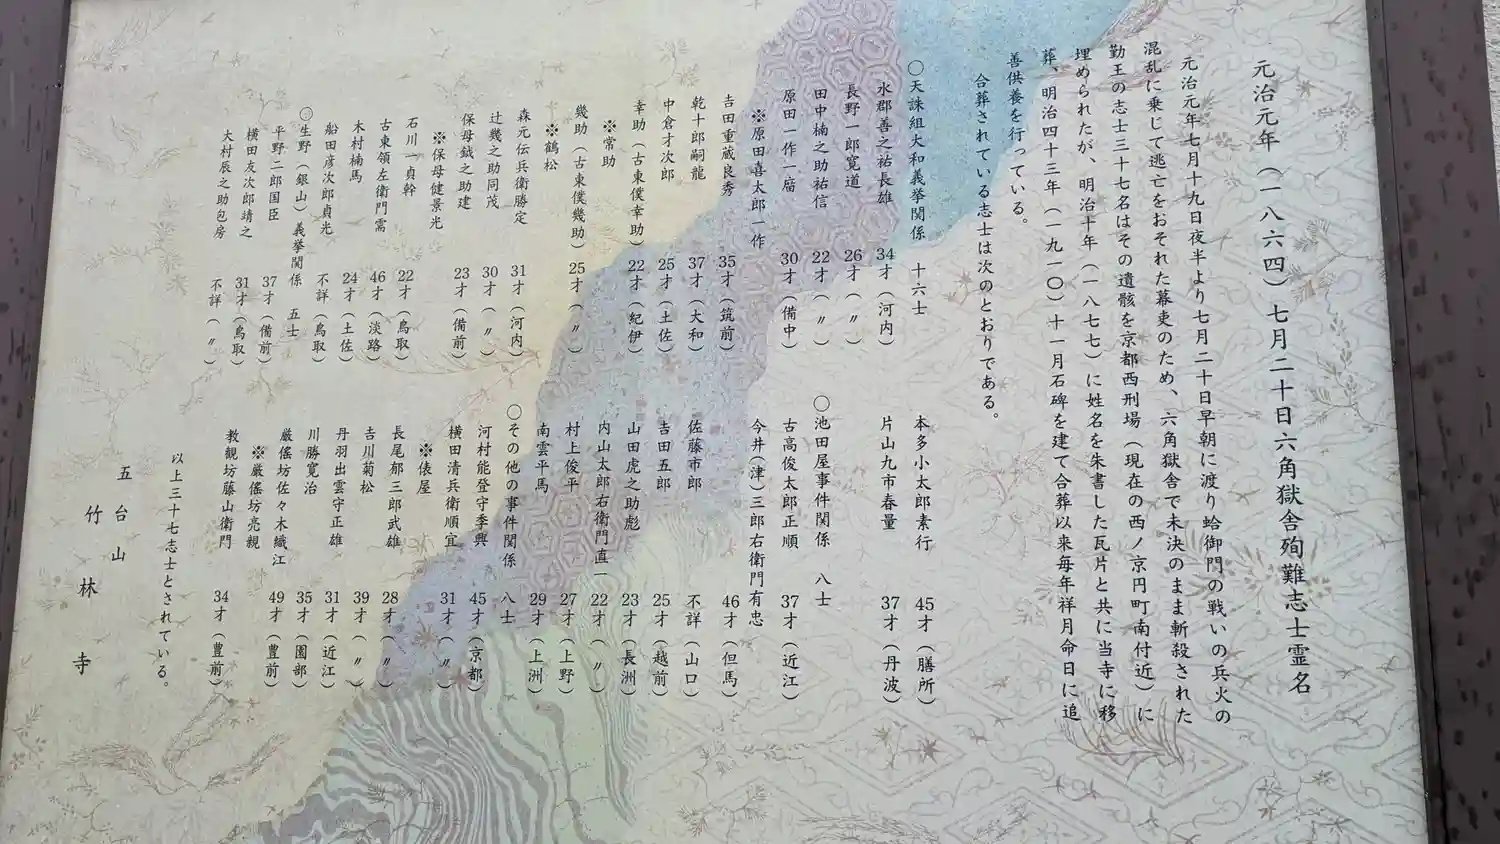 元治元年（一八六四）七月二十日六角獄舎殉難志士霊名
元治元年七月十九日夜半より七月二十日早朝に渡り蛤御門の戦いの兵火の
混乱に乗じて逃亡をおそれた幕吏のため、六角獄舎で未決のまま斬殺された
勤王の志士三十七名はその遺骸を京都西刑場（現在の西ノ京円町南付近）に
埋められたが、明治十年（一八七七）に姓名を朱書した瓦片と共に当寺に移
葬、明治四十三年（一九一〇）十一月石碑を建て合葬以来毎年祥月命日に追
善供養を行っている。
合葬されている志士は次のとおりである。
○天誅組大和義挙関係　十六士
水郡善之祐長雄　34才（河内）
長野一郎寛道　26才（〃）
田中楠之助祐信　22才（〃）
原田一作一㢝　30才（備中）
※原田喜太郎一作
吉田重蔵良秀　35才（筑前）
乾十郎嗣龍　37才（大和）
中倉才次郎　25才（土佐）
幸助（古東僕幸助）　22才（紀伊）
※常助
幾助（古東僕幾助）　25才（〃）
※鶴松
森元伝兵衛勝定　31才（河内）
辻幾之助同茂　30才（〃）
保母鉞之助建　23才（備前）
※保母健景光
石川一貞幹　22才（鳥取）
古東領左衛門㝫　46才（淡路）
木村楠馬　24才（土佐）
船田彦次郎貞光　不詳（鳥取）
○生野（銀山）義挙関係　五士
平野二郎国臣　37才（備前）
横田友次郎靖之　31才（鳥取）
大村辰之助包房　不詳（〃）
本多小太郎素行　45才（膳所）
片山九市春量　37才（丹波）
○池田屋事件関係　八士
古高俊太郎正順　37才（近江）
今井（津）三郎右衛門有忠　46才（但馬）
佐藤市郎　不詳（山口）
吉田五郎　25才（越前）
山田虎之助彪　23才（長洲）
内山太郎右衛門直一　22才（〃）
村上俊平　27才（上野）
南雲平馬　29才（上洲）
○その他の事件関係　八士
河村能登守季興　45才（京都）
横田清兵衛順宜　31才（〃）
※俵屋
長尾郁三郎武雄　28才（〃）
吉川菊松　39才（〃）
丹羽出雲守正雄　31才（近江）
川勝寛治　35才（園部）
厳傜坊佐々木織江　49才（豊前）
※厳傜坊亮親
教観坊藤山衛門　34才（豊前）
以上三十七志士とされている。
五台山
竹林寺